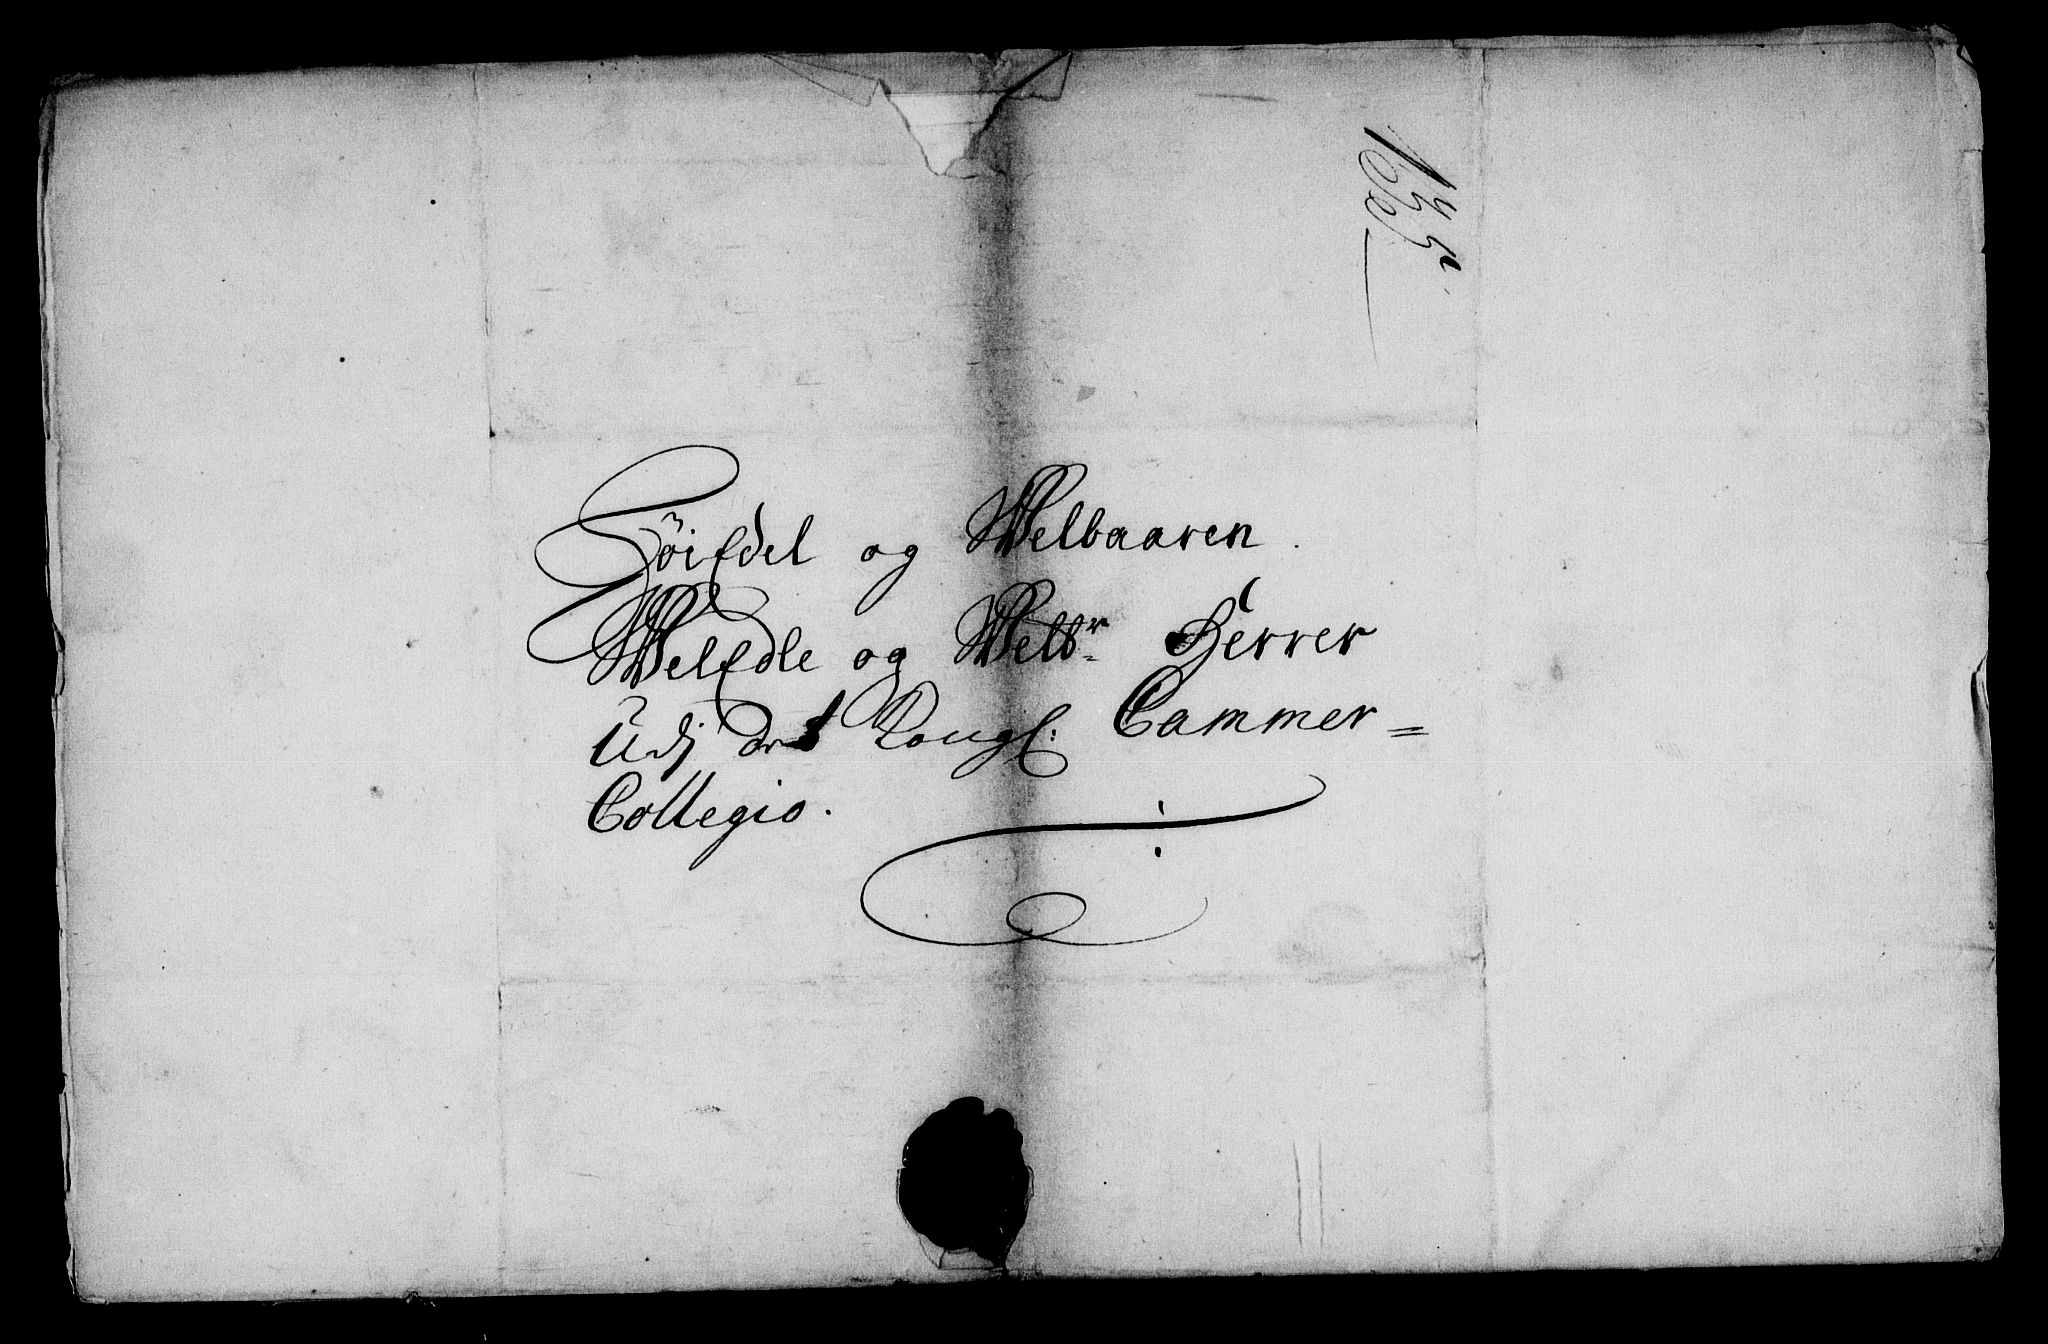 HöiEdel og Welbaaren
WelEdle og Welbr Herrer
Udj det Kongl: Cammer=
Collegio.